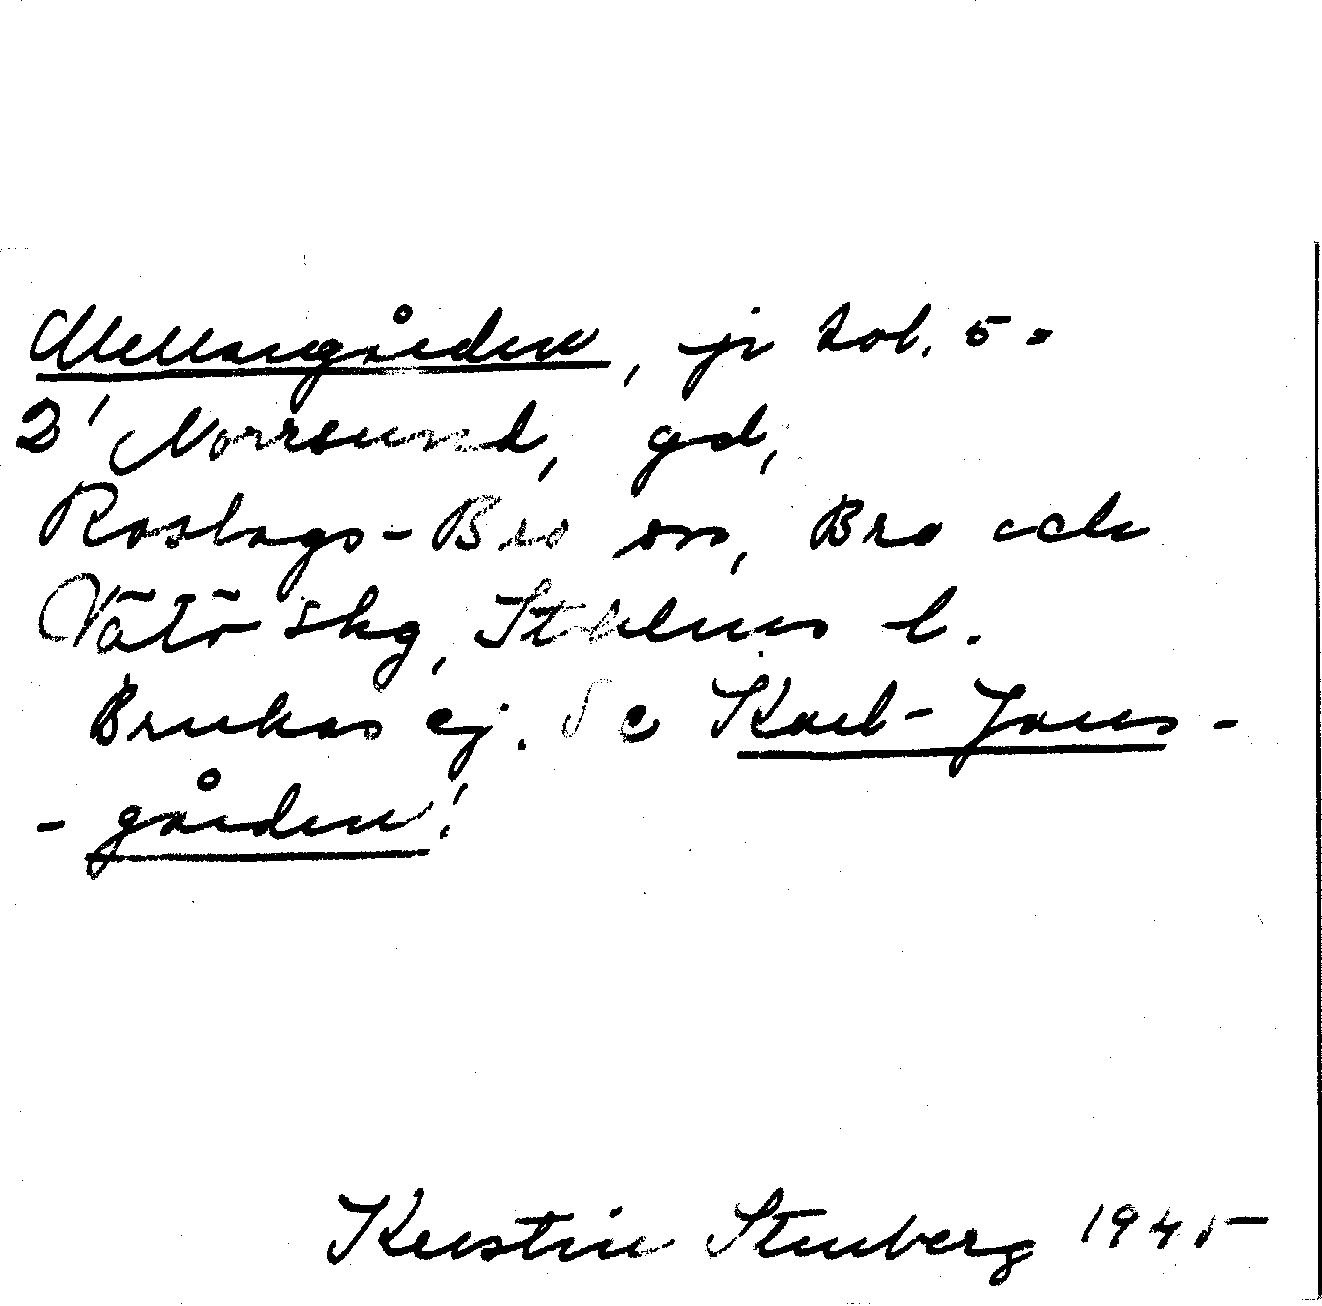 Mellangården, jr kol. 5 =
2' Norrsund, gd,
Roslags-Bro sn, Bro och
Vätö skg, Sthlms l.
Brukas ej. Se Karl-Jans-
-gården!
Kerstin Stenberg 1945